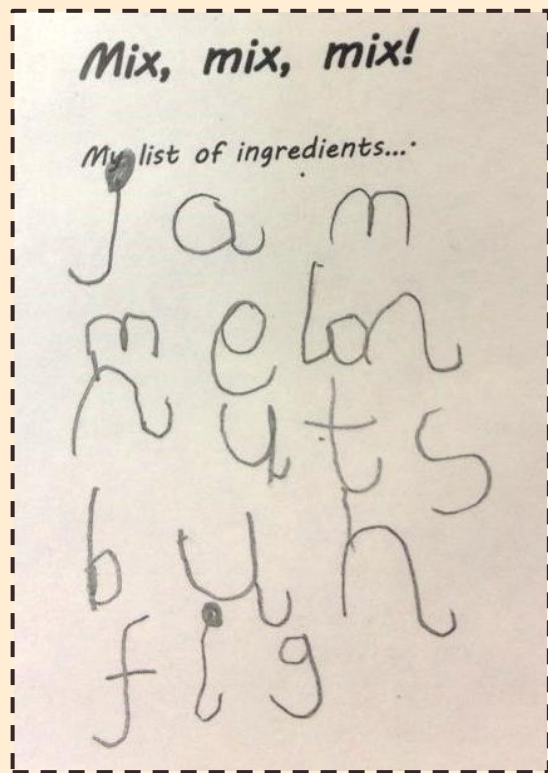 Mix, mix, mix!
My list of ingredients...
jam
melon
nuts
bun
fig